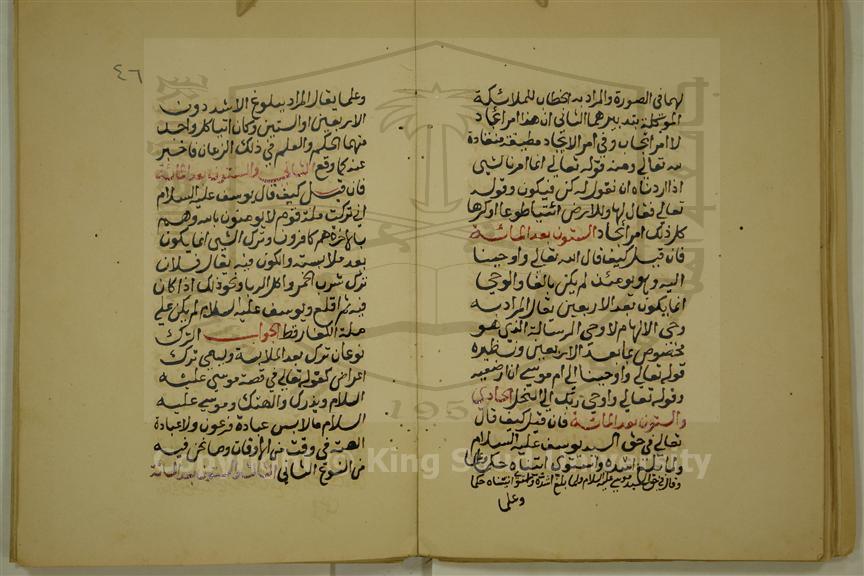 لهما في الصورة والمراد به الخطاب للملائكة
الموكلة بتدبيرهما الثاني ان هذا امر ايجاد
لا امر ايجاب وفي امر الايجاد مطيعة منقادة
لله تعالي ومنه قوله تعالي انما امرنا لشي
اذا اردناه ان نقول له كن فيكون وقوله
تعالي فقال لها وللارض ائتيا طوعا او كرها
كل ذلك امر ايجاد الستون بعد المائة
فان قيل كيف قال الله تعالي واوحينا
اليه وهو يومئذ لم يكن بالغا والوحي
انما يكون بعد الاربعين يقال المراد به
وحي الالهام لا وحي الرسالة الذي هو
مخصوص بما بعد الاربعين ونظيره
قوله تعالي واوحينا الي ام موسي ان ارضعيه
وقوله تعالي واوحي ربك الي النحل الحادي
والستون بعد المائة فان قيل كيف قال
تعالي في حق السيد يوسف عليه السلام
ولما بلغ اشده اتيناه حكما وعلما
وقال في حق السيد موسي عليه السلام ولما بلغ اشده واستوي اتيناه حكما
وعلما
٤٦
وعلما يقال المراد ببلوغ الاشد دون
الاربعين او الستين وكان اتيا كل واحد
منهما الحكم والعلم في ذلك الزمان فاخبر
عنه كما وقع الثاني والستون بعد المائة
فان قيل كيف قال يوسف عليه السلام
اني تركت ملة قوم لا يومنون بالله وهم
بالاخرة هم كافرون وترك الشي انما يكون
بعد ملابسته والكون فيه يقال فلان
ترك شرب الخمر واكل الربا ونحو ذلك اذا كان
فيه ثم اقلع ويوسف عليه السلام لم يكن علي
ملة الكفار قط الجواب الترك
نوعان ترك بعد الملابسة ويسمي ترك
اعراض كقوله تعالي في قصة موسي عليه
السلام ويذرك والهتك وموسي عليه
السلام ما لابس عبادة فرعون ولا عبادة
الهته في وقت من الاوقات وما نحن فيه
من النوع الثاني الثالث والستون بعد المائة
1957
Copyright © King Saud University